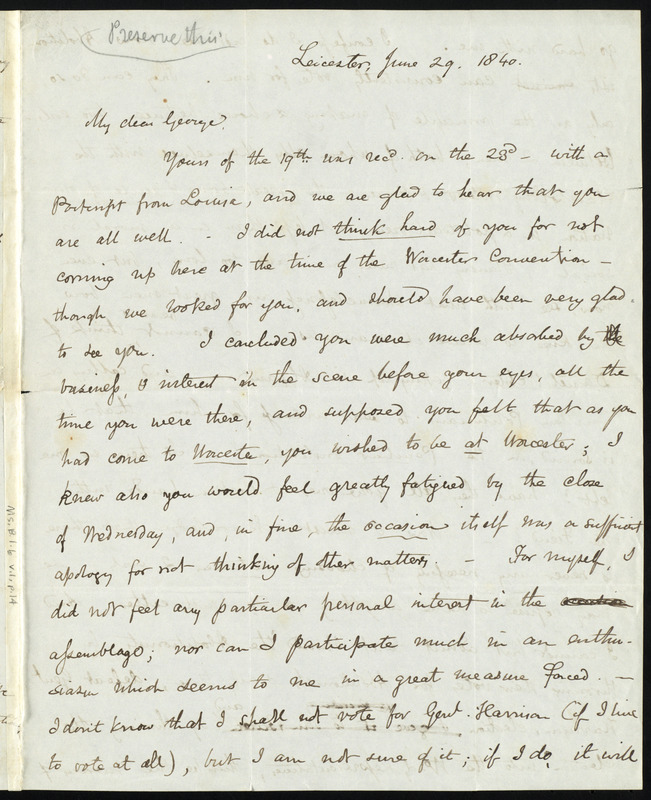 Preserve this!
Leicester, June 29. 1840.
My dear George.
Yours of the 19th was recd. on the 23d - with a
Postcript from Louisa, and we are glad to hear that you
are all well. - I did not think hard of you for not
coming up here at the time of the Worcester Convention -
though we looked for you, and should have been very glad
to see you. I concluded you were much absorbed by the
business, & interest in the scene before your eyes, all the
time you were there, and supposed you felt that as you
had come to Worcester, you wished to be at Worcester; I
knew also you would feel greatly fatigued by the close
of Wednesday, and, in fine, the occasion itself was a sufficient
apology for not thinking of other matters. - For myself, I
did not feel any particular personal interest in the
assemblage; nor can I participate much in an enthu-
siasm which seems to me in a great measure forced. -
I don't know that I shall not vote for Genl. Harrison (if I live
to vote at all), but I am not sure of it; if I do, it will
Ms.B.1.6 v.1, p.14